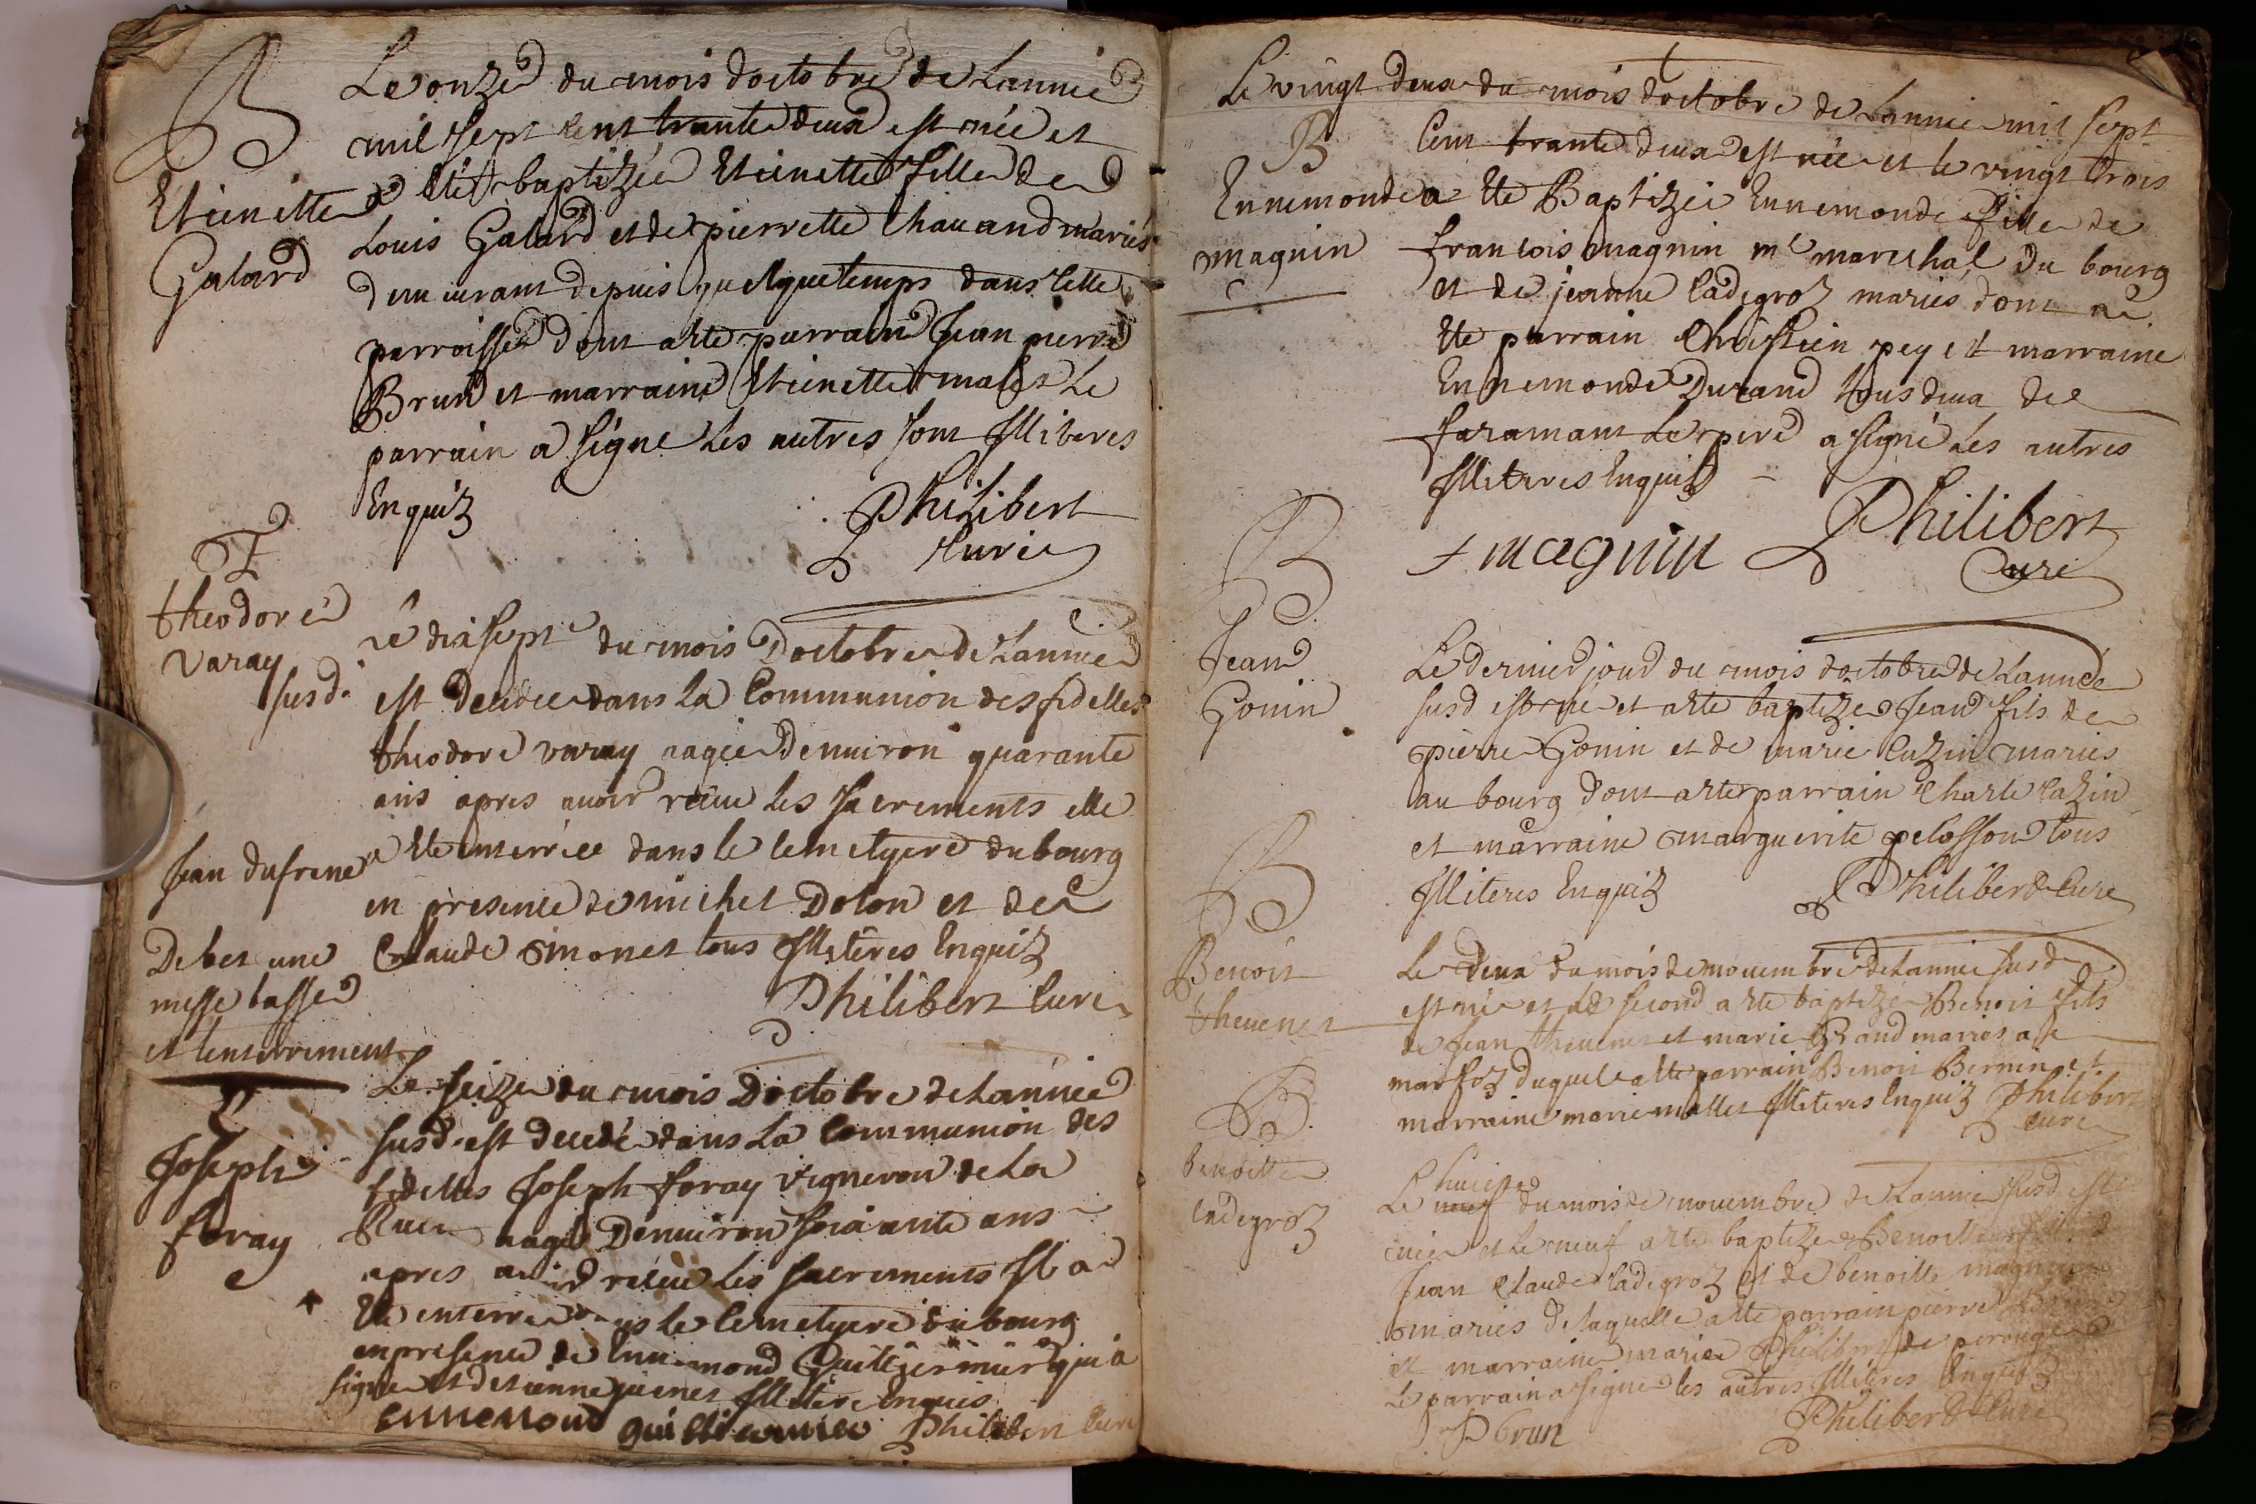 B
Etienette
Galard
Le onze du mois doctobre de Lannee
mil sept cent trante deux est née et
a été baptizée Etienette fille de
Louis Galard et de pierrette Chauand mariés
demeurant depuis quelque temps dans cette
parroisse dont a ete parrain Jean pierre
Brun et marraine Etienette Le
parrain a signe les autres sont Illiteres
Enquiz
Philibert
Curé
theodore
varay
susd.
Jean dufrene
Debet une
messe basse
et lenterrement
Le dixsept du mois Doctobre de Lannee
est decedee dans la Communion des fidelles
theodore varay aagee Denuiron quarante
ans apres auoir recue les sacrements elle
a ete enterrée dans le cemetyere du bourg
en presence de michel Dolon et de
Claude monet tous Illiteres Enquiz
Philibert Curé
Joseph
foray
Le seize du mois Doctobre de Lannee
susd. est decedé dans la Communion des
fidelles Joseph foray vigneron de la
Ruer aagé Denuiron soixante ans
apres auoir recue les sacrements Il a
ete enterre dans le Cemetyere du bourg
en presence de Ennemond qui a
signe et detienne Illitere Enquis
Ennemond Philibert Curé
Le vingt deux du mois doctobre de Lannee mil sept
B
Ennemonde
magnin
Cent trante deux est née et le vingt trois
a ete Baptizée Ennemonde fille de
francois magnin me mareschal du bourg
et de jeanne Cadegroz mariés dont a
ete parrain Christien pey et marraine
Ennemonde Durand tous deux de
faramant Le pere a signé les autres
Illiteres Enquiz
f magnin Philibert
Curé
B
Jean
Gonin
Le dernier jour du mois doctobre de Lannee
susd est né et a ete baptize Jean fils de
pierre Gonin et de marie Cazin mariés
au bourg dont a ete parrain Charle Cazin
et marraine marguerite pelosson tous
Illiteres Enquiz Philibert Curé
B
Benoit
theuenet
Le deux du mois de nouembre de Lannee susd
est né et le second a ete baptizé Benoit fils
de Jean theuenet et marie mariés a
marfoz duquel a ete parrain Benoit Bernin et
marraine marie mallet Illiteres Enquiz Philibert
Curé
B
benoitte
cadegroz
huit
Le neuf du mois de nouembre de Lannee susd. est
née et le neuf a ete baptizee Benoitte fille de
Jean Claude Cadegroz et de benoitte
mariés de laquelle a ete parrain pierre
et marraine marie Philibert de perouge
Le parrain a signe les autres Illiteres Enquiz
P brun Philibert Curé